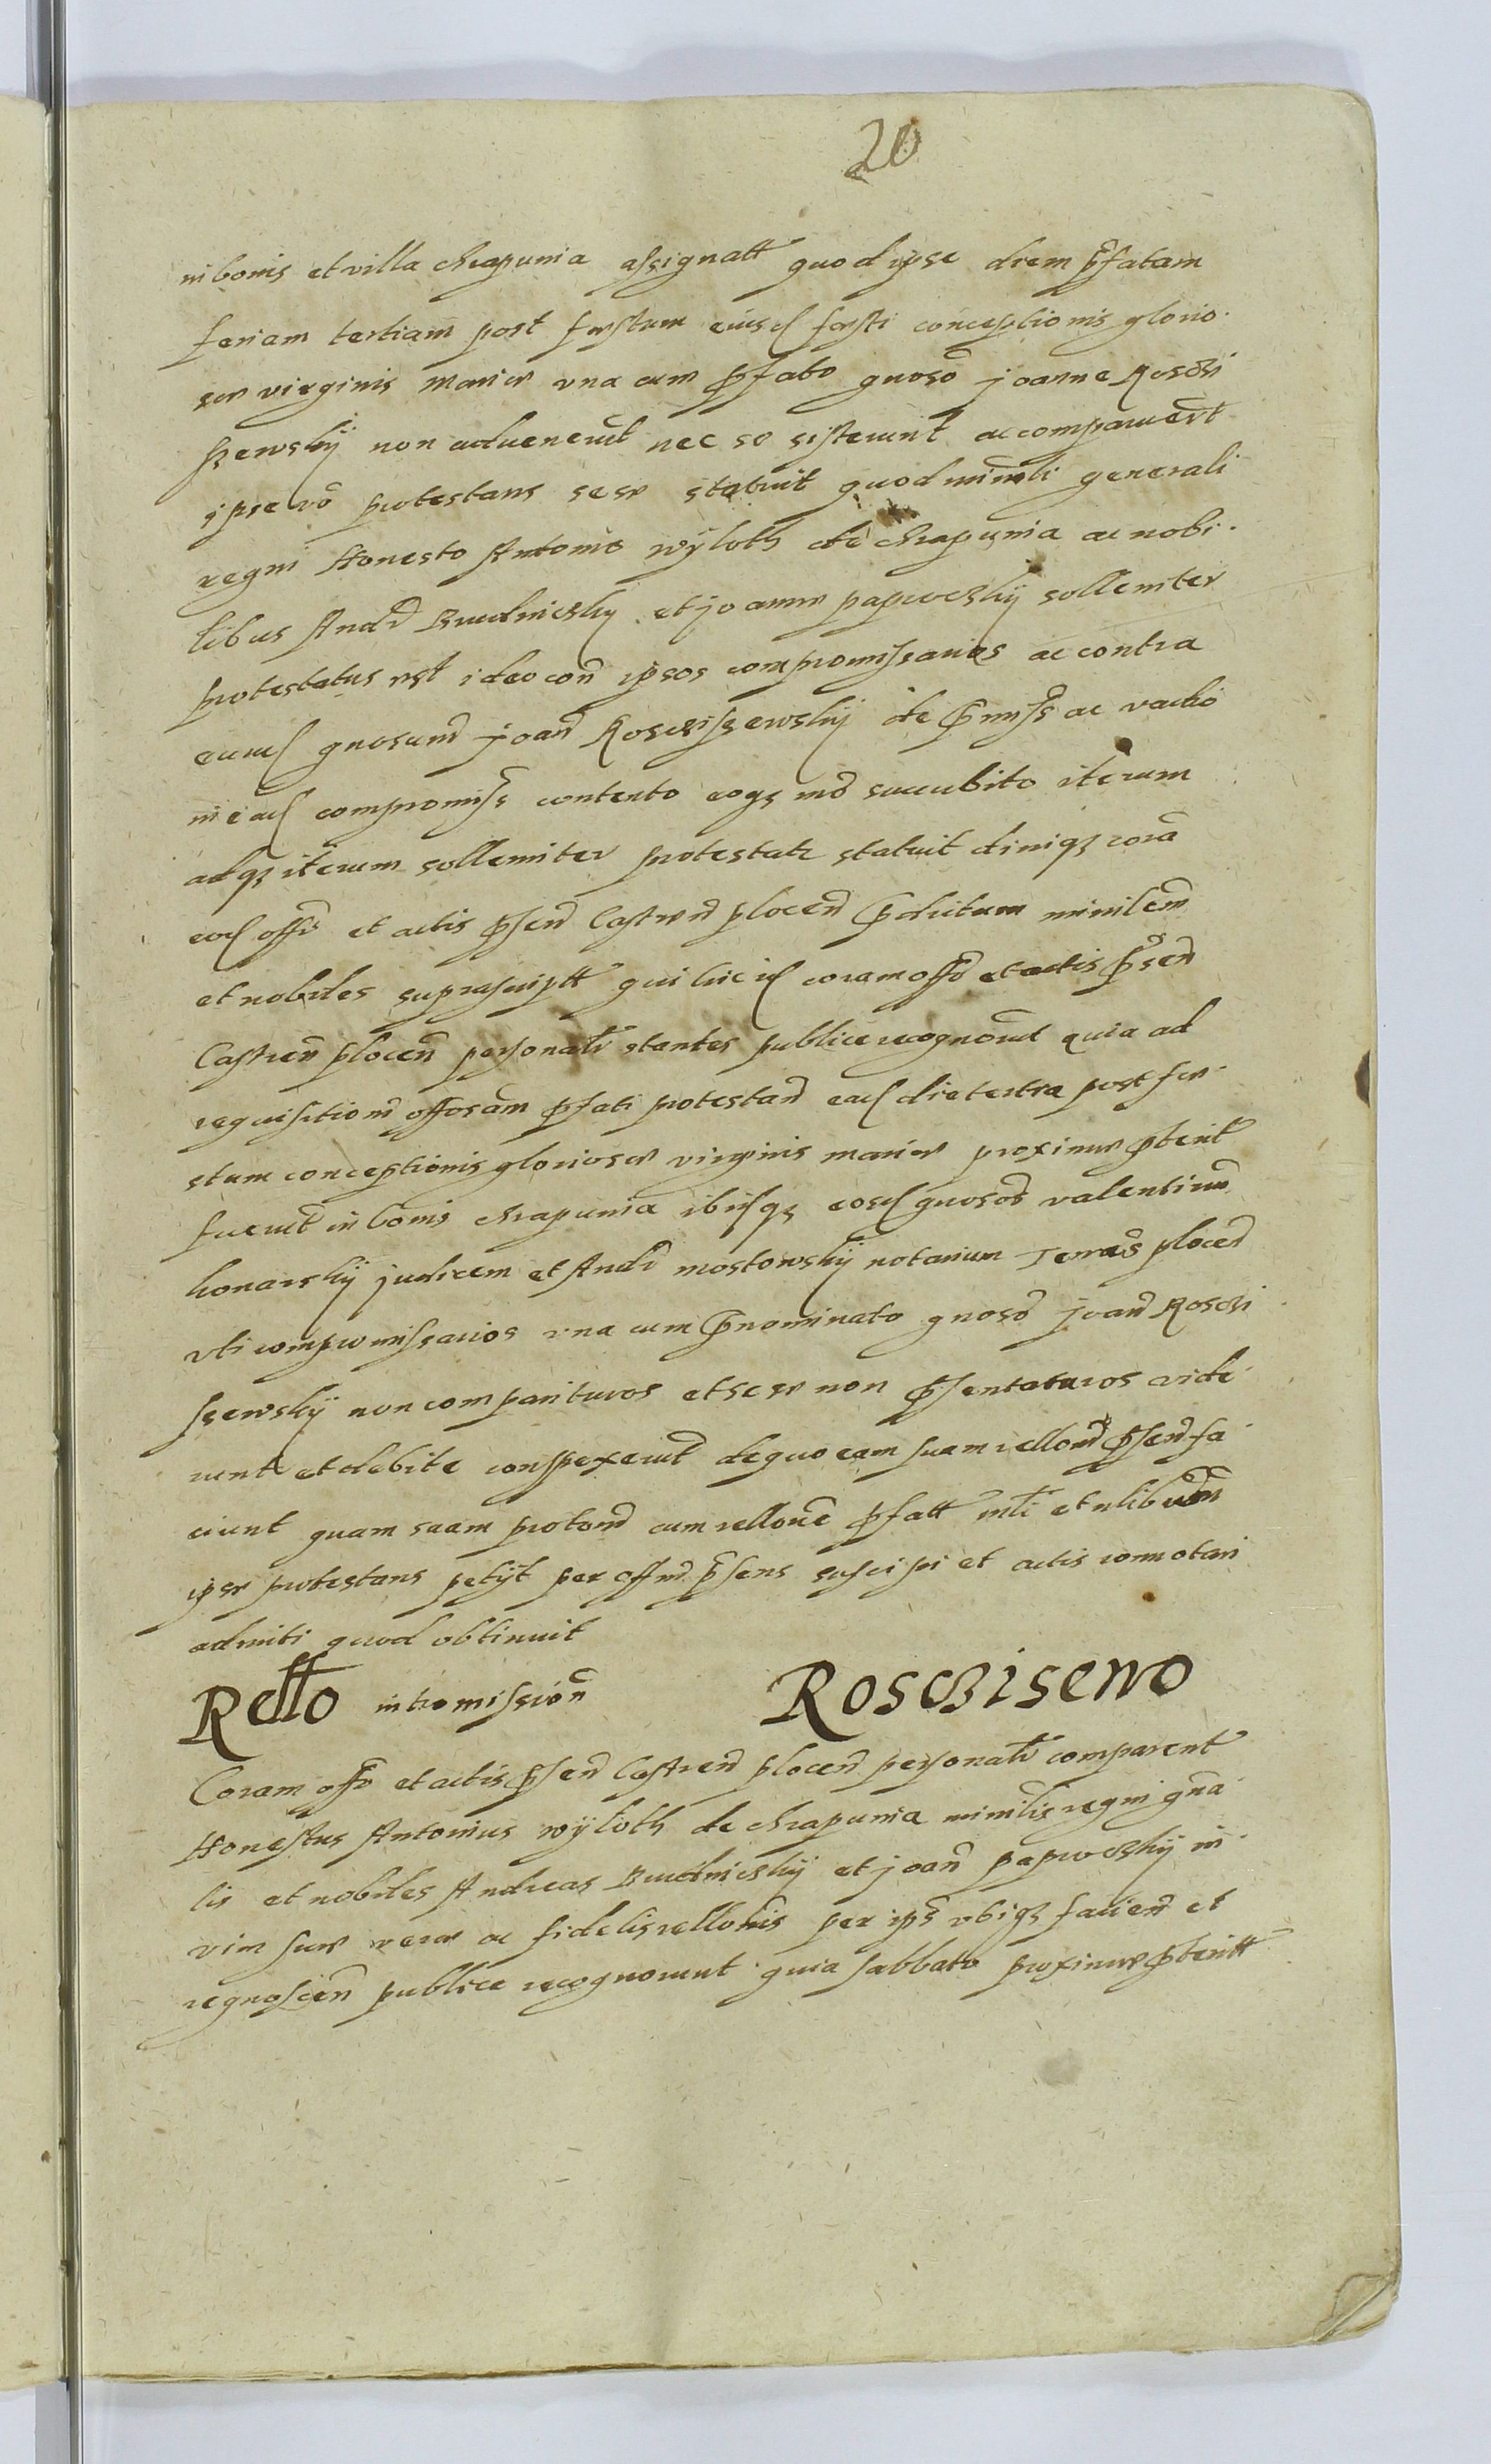 20
in bonis et villa chrapunia assignatt quod ipse diem p̄fatam
feriam tertiam post festum eiusd festi conceptionis glorio
sæ virginis mariæ vna cum p̄fato gnoso Joanne Rosczi
szewskÿ non aduenerūt nec se sisterunt ac comparuerūt
ipse vō protestans sese statuit quod ministli generali
regni Honesto Antonio wÿloth de chrapunia ac nobi
libus Andr Rudnicsky et joanne papwczkÿ sollemniter
protestatus est ideo con ipsos compromissarios ac contra
eund gnosum Joan̄ Roscziszewskÿ de p̄miss ac vadio
in ead compromiss contento eoqz no succubito iterum
adqz iterum sollemniter protestatr statuit diniqz corā
eod offō et actis p̄sen̄ Castren̄ plocen̄ p̄dictum minilem
et nobiles suprascriptt qui hic id coram offō et actis p̄sen̄
Castren̄ plocen̄ personalr stantes publice recognorūt quia ad
requisitionē offosam p̄fati protestan̄ ead die tertia post fe
stum conceptionis gloriosæ virginis mariæ proximæ p̄terit
fuerūt in bonis chrapunia ibidqz eosd gnosos valentinū
konarskÿ judicem et Andr mostowskÿ notarium Terræs plocen̄
vti compromissarios vna cum p̄nominato gnoso Joan̄ Rosczi
szewskÿ non comparituros et sese non p̄sentaturos vide
runt et debite conspexerūt de quo eam suam rellonē p̄sen̄ fa
ciunt quam suam protonē cum rellone p̄fatt mlī et nlibūm
ipse protestans petÿt per offm p̄sens suscipi et actis connotari
admiti quod obtinuit
Rello intromissioñ Roscziseno
Coram offō et actis p̄sen̄ Castren̄ plocen̄ personalr comparent
Honestus Antonius wÿloth de chrapunia minilis regni gn̄a
lis et nobiles Andreas Rudnicskÿ et joan̄ papwczkÿ in
vim suæ veræ ac fidelis rellonis per ips vbiqz facien̄ et
regnoscen̄ publice recognorunt quia sabbato proximæ p̄teritt